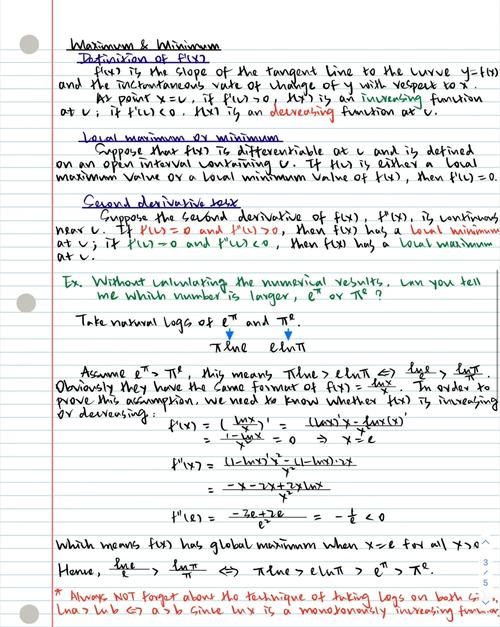 Maximum & Minimum
Definition of f'(x)
f'(x) is the slope of the tangent line to the curve y=f(x)
and the instantaneous rate of change of y with respect to x.
At point x=c, if f'(c)>0, f(x) is an increasing function
at c; if f'(c)<0, f(x) is an decreasing function at c.
Local maximum or minimum
Suppose that f(x) is differentiable at c and is defined
on an open interval containing c. If f(c) is either a local
maximum value or a local minimum value of f(x), then f'(c)=0.
Second derivative test
Suppose the second derivative of f(x), f"(x), is continuous
near c. If f'(c)=0 and f"(c)>0, then f(x) has a local minimum
at c; if f'(c)=0 and f"(c)<0, then f(x) has a local maximum
at c.
Ex. Without calculating the numerical results, can you tell
me which number is larger, e^π or π^e?
Take natural logs of e^π and π^e.
πlne elnπ
Assume e^π > π^e, this means πlne > elnπ ⇔ lne/e > lnπ/π.
Obviously they have the same format of f(x) = lnx/x. In order to
prove this assumption, we need to know whether f(x) is increasing
or decreasing:
f'(x) = (lnx/x)' = (lnx)'x - lnx(x)'/x²
= 1-lnx/x² = 0 ⇒ x=e
f"(x) = (1-lnx)'x² - (1-lnx)·2x/x²
= -x-2x+2xlnx/x²
f"(e) = -3e+2e/e² = -1/e < 0
which means f(x) has global maximum when x=e for all x>0
Hence, lne/e > lnπ/π ⇔ πlne > elnπ > e^π > π^e.
3
/
5
* Always NOT forget about the technique of taking logs on both
lna > lnb ⇔ a>b since lnx is a monotonously increasing